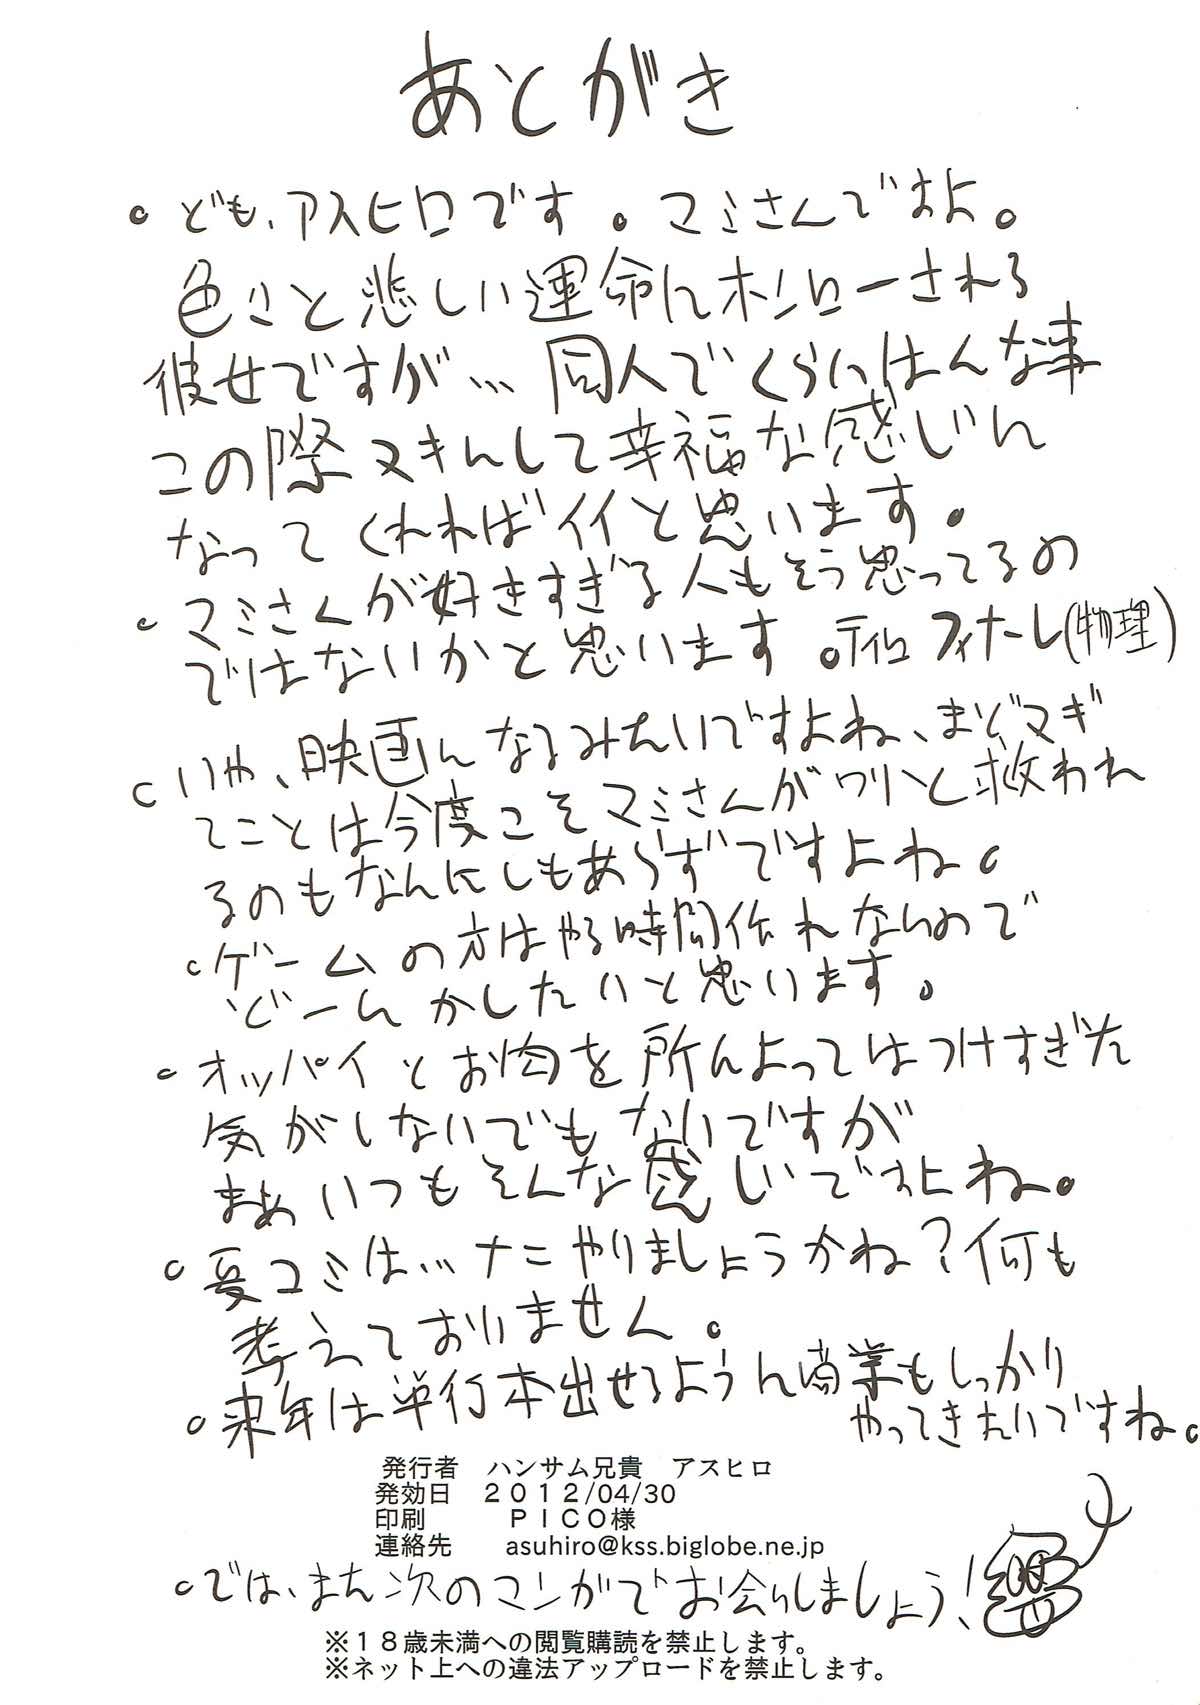 あとがき
。ども、アスヒロです。マミさんですよ。
色々と悲しい運命にホンローされる
彼女ですが…同人でくらいはんな事
この際ヌキにして幸福な感じに
なってくれればイイと思います。
。マミさんが好きすぎる人もそう思ってるの
ではないかと思います。ティロフィナーレ(物理)
。いや、映画になるみたいですよね、まどマギ
てことは今度こそマミさんがワリと救われ
るのもなんにしもあらずですよね。
。ゲームの方はやる時間作れないので
どーにかしたいと思います。
。オッパイとお肉を所によってはつけすぎた
気がしないでもないですが
まぁいつもそんな感じですよね。
。夏コミは…ナニやりましょうかね？何も
考えておりません。
。来年は単行本出せるように商業もしっかり
やってきたいですね。
発行者　ハンサム兄貴　アスヒロ
発効日　２０１２/04/30
印刷　　　ＰＩＣＯ様
連絡先　　asuhiro@kss.biglobe.ne.jp
。では、また次のマンガでお会いしましょう！
※１８歳未満への閲覧購読を禁止します。
※ネット上への違法アップロードを禁止します。